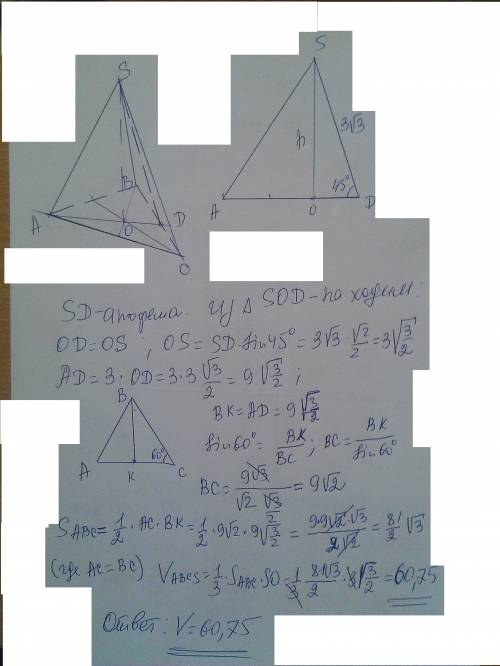 S
A
B
O
D
O
S
h
3√3
45°
A
O
D
SD-апофема. Из Δ SOD-находим:
OD=OS ; OS = SD·sin45° = 3√3·√2/2 = 3√(3/2)
AD=3·OD=3·3√3/2 = 9√(3/2) ;
B
60°
A
K
C
BK=AD=9√(3/2)
sin60°= BK/BC ; BC = BK/sin60°
BC = 9√3/(√2·√3/2) = 9√2
S ABC = 1/2·AC·BK = 1/2·9√2·9√(3/2) = 9·9√2·√3/(2√2) = 81/2 √3
(где AC=BC) V ABCS = 1/3·S ABC·SO = 1/3·81√3/2·3√(3/2) = 60,75
Ответ: V=60,75